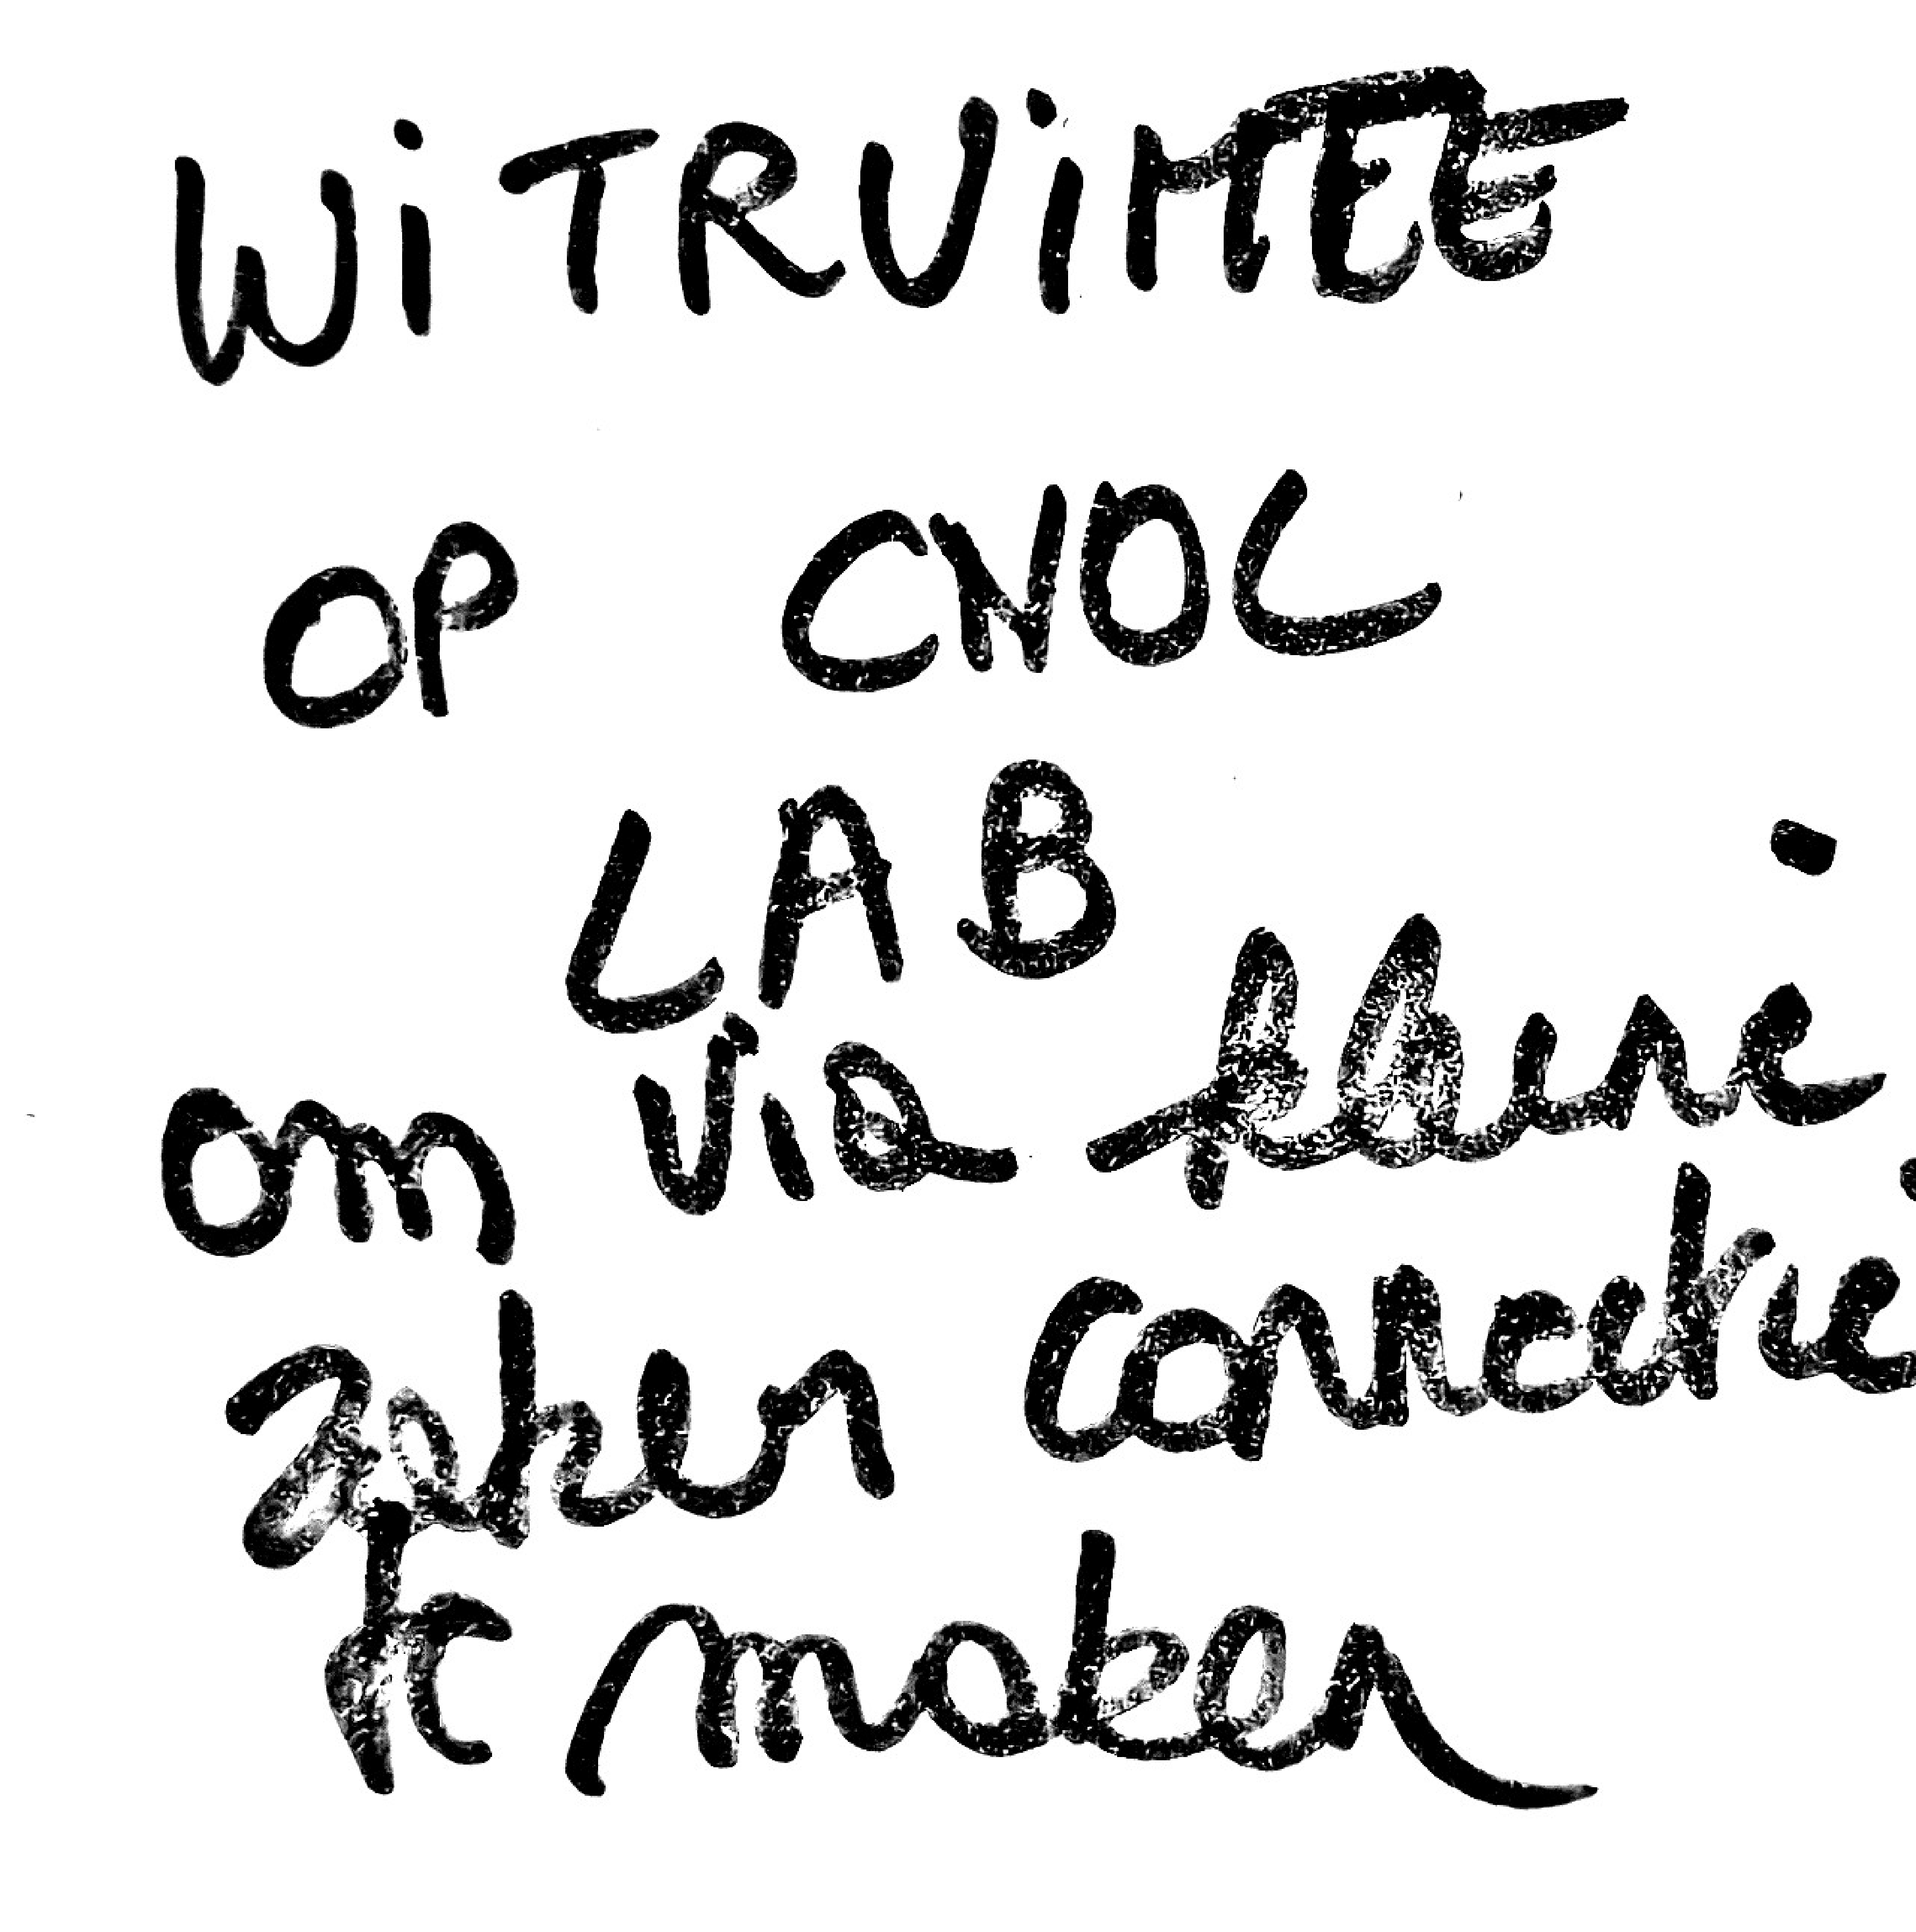 WiTRUiMTE
OP CNOC
LAB
om via
zaken connectie
te maken